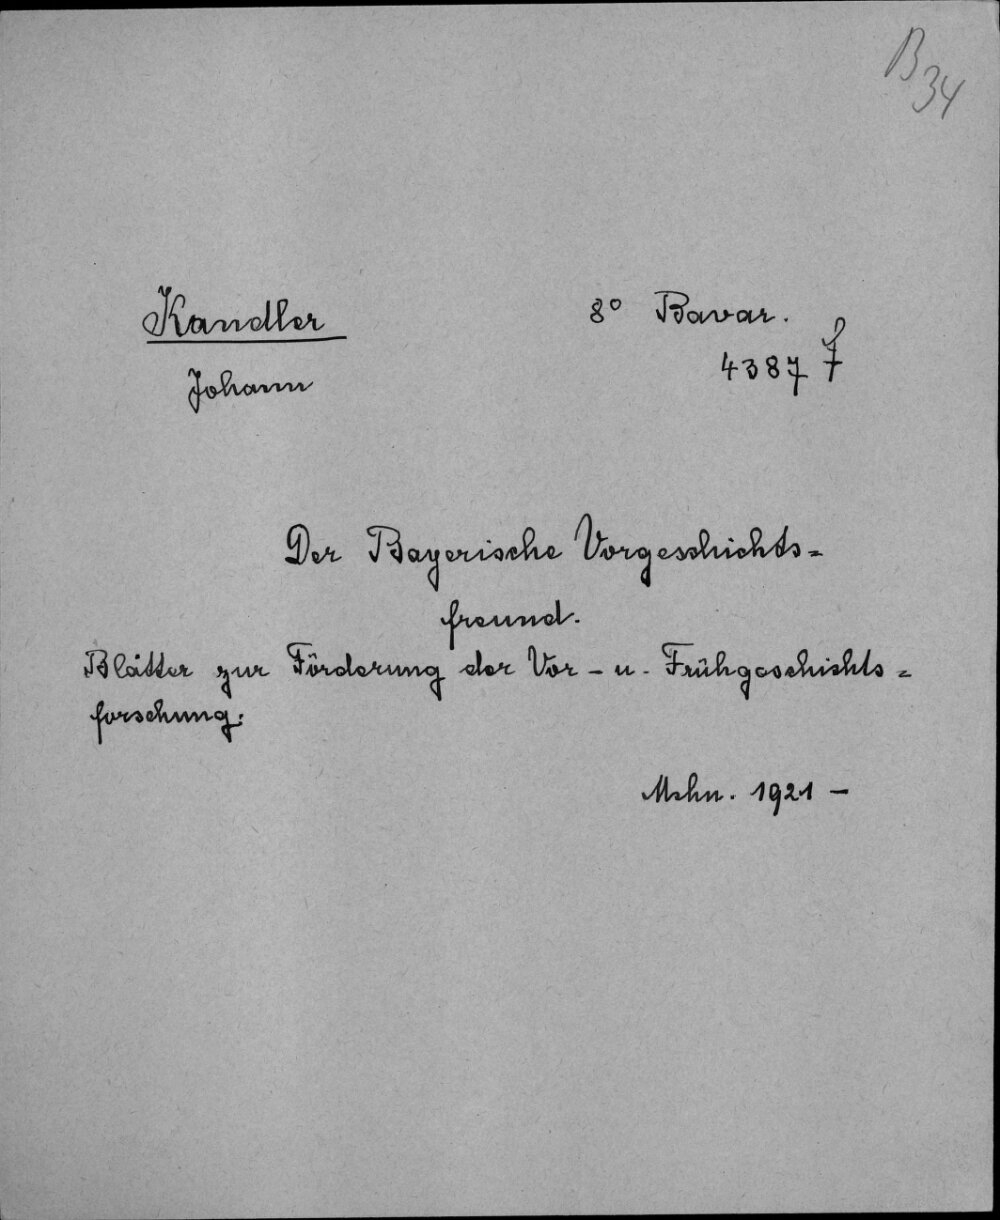 B
34
Kandler 8° Bavar.
Johann 4387 f
Der Bayerische Vorgeschichts=
freund.
Blätter zur Förderung der Vor- u. Frühgeschichts=
forschung.
Mchn. 1921 –